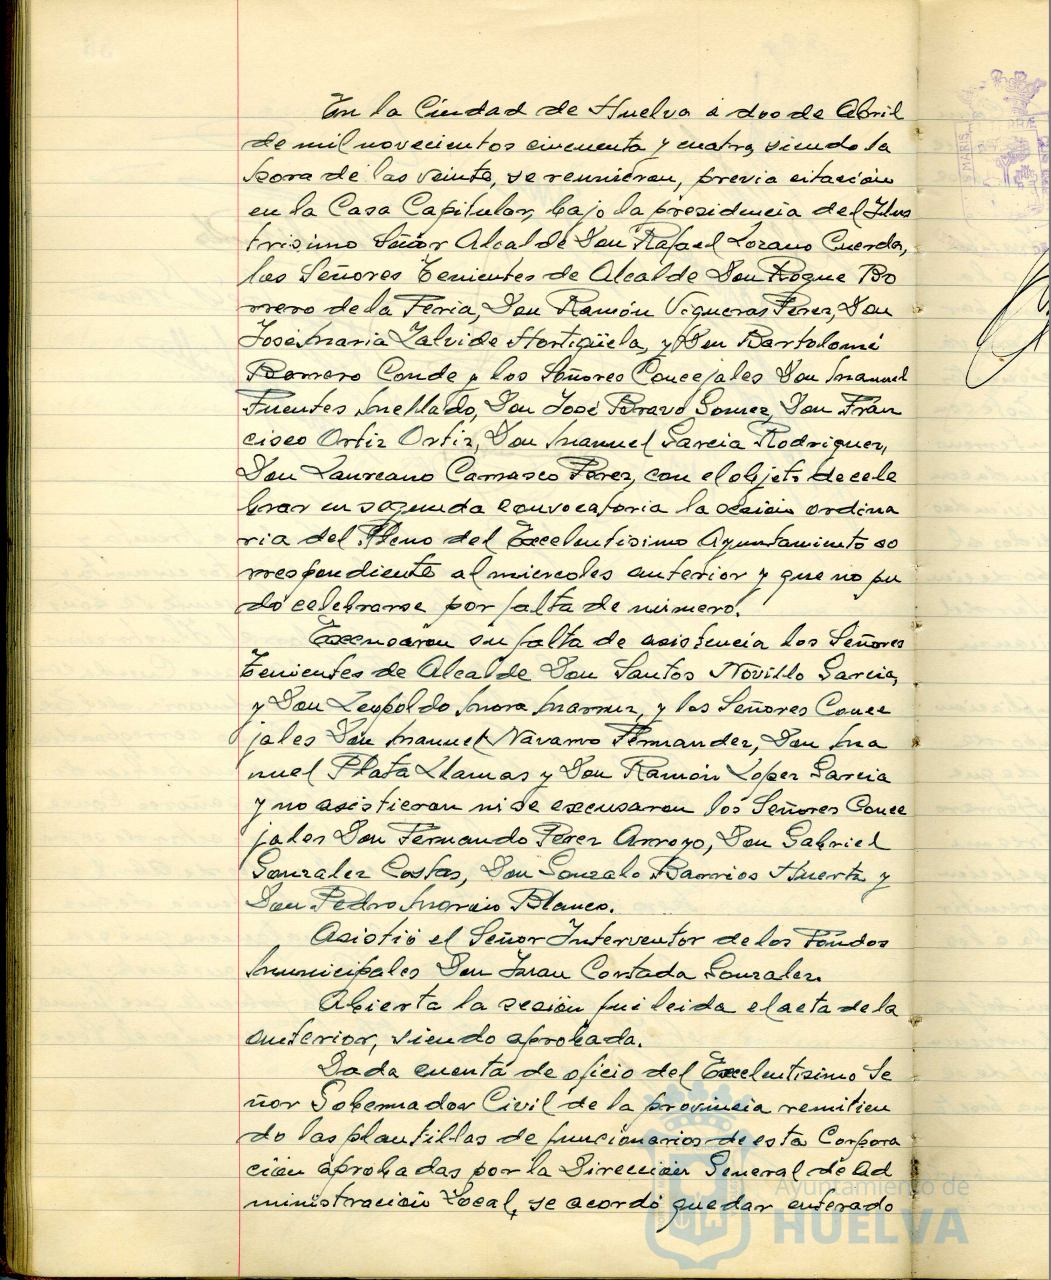 En la Ciudad de Huelva a dos de Abril
de mil novecientos cincuenta y cuatro, siendo la
hora de las veinte, se reunieron, previa citación
en la Casa Capitular, bajo la presidencia del Ilus
trisimo Señor Alcalde Don Rafael Lozano Cuerda,
los Señores Tenientes de Alcalde Don Roque Bo
rrero de la Feria, Don Ramón Vigueras Perez, Don
José Maria Zalvide Hortigüela, y Don Bartolomé
Borrero Conde y los Señores Concejales Don Manuel
Fuentes Mellado, Don José Bravo Gomez, Don Fran
cisco Ortiz Ortiz, Don Manuel Garcia Rodriguez,
Don Laureano Carrasco Perez, con el objeto de cele
brar en segunda convocatoria la sesión ordina
ria del Pleno del Excelentisimo Ayuntamiento co
rrespondiente al miercoles anterior y que no pu
do celebrarse por falta de número.
Excusaron su falta de asistencia los Señores
Tenientes de Alcalde Don Santos Novillo Garcia,
y Don Leopoldo Mora y los Señores Conce
jales Don Manuel Navarro Fernandez, Don Ma
nuel Plata Llamas y Don Ramón Lopez Garcia
y no asistieron ni se excusaron los Señores Conce
jales Don Fernando Perez Arroyo, Don Gabriel
Gonzalez Costas, Don Gonzalo Barrios Huerta y
Don Pedro Blanco.
Asistió el Señor Interventor de los Fondos
Municipales Don Juan Contada Gonzalez.
Abierta la sesión fué leida el acta de la
anterior, siendo aprobada.
Dada cuenta de oficio del Excelentisimo Se
ñor Gobernador Civil de la provincia remitien
do las plantillas de funcionarios de esta Corpora
ción aprobadas por la Dirección General de Ad
ministración Local, se acordó quedar enterado
Ayuntamiento de
HUELVA